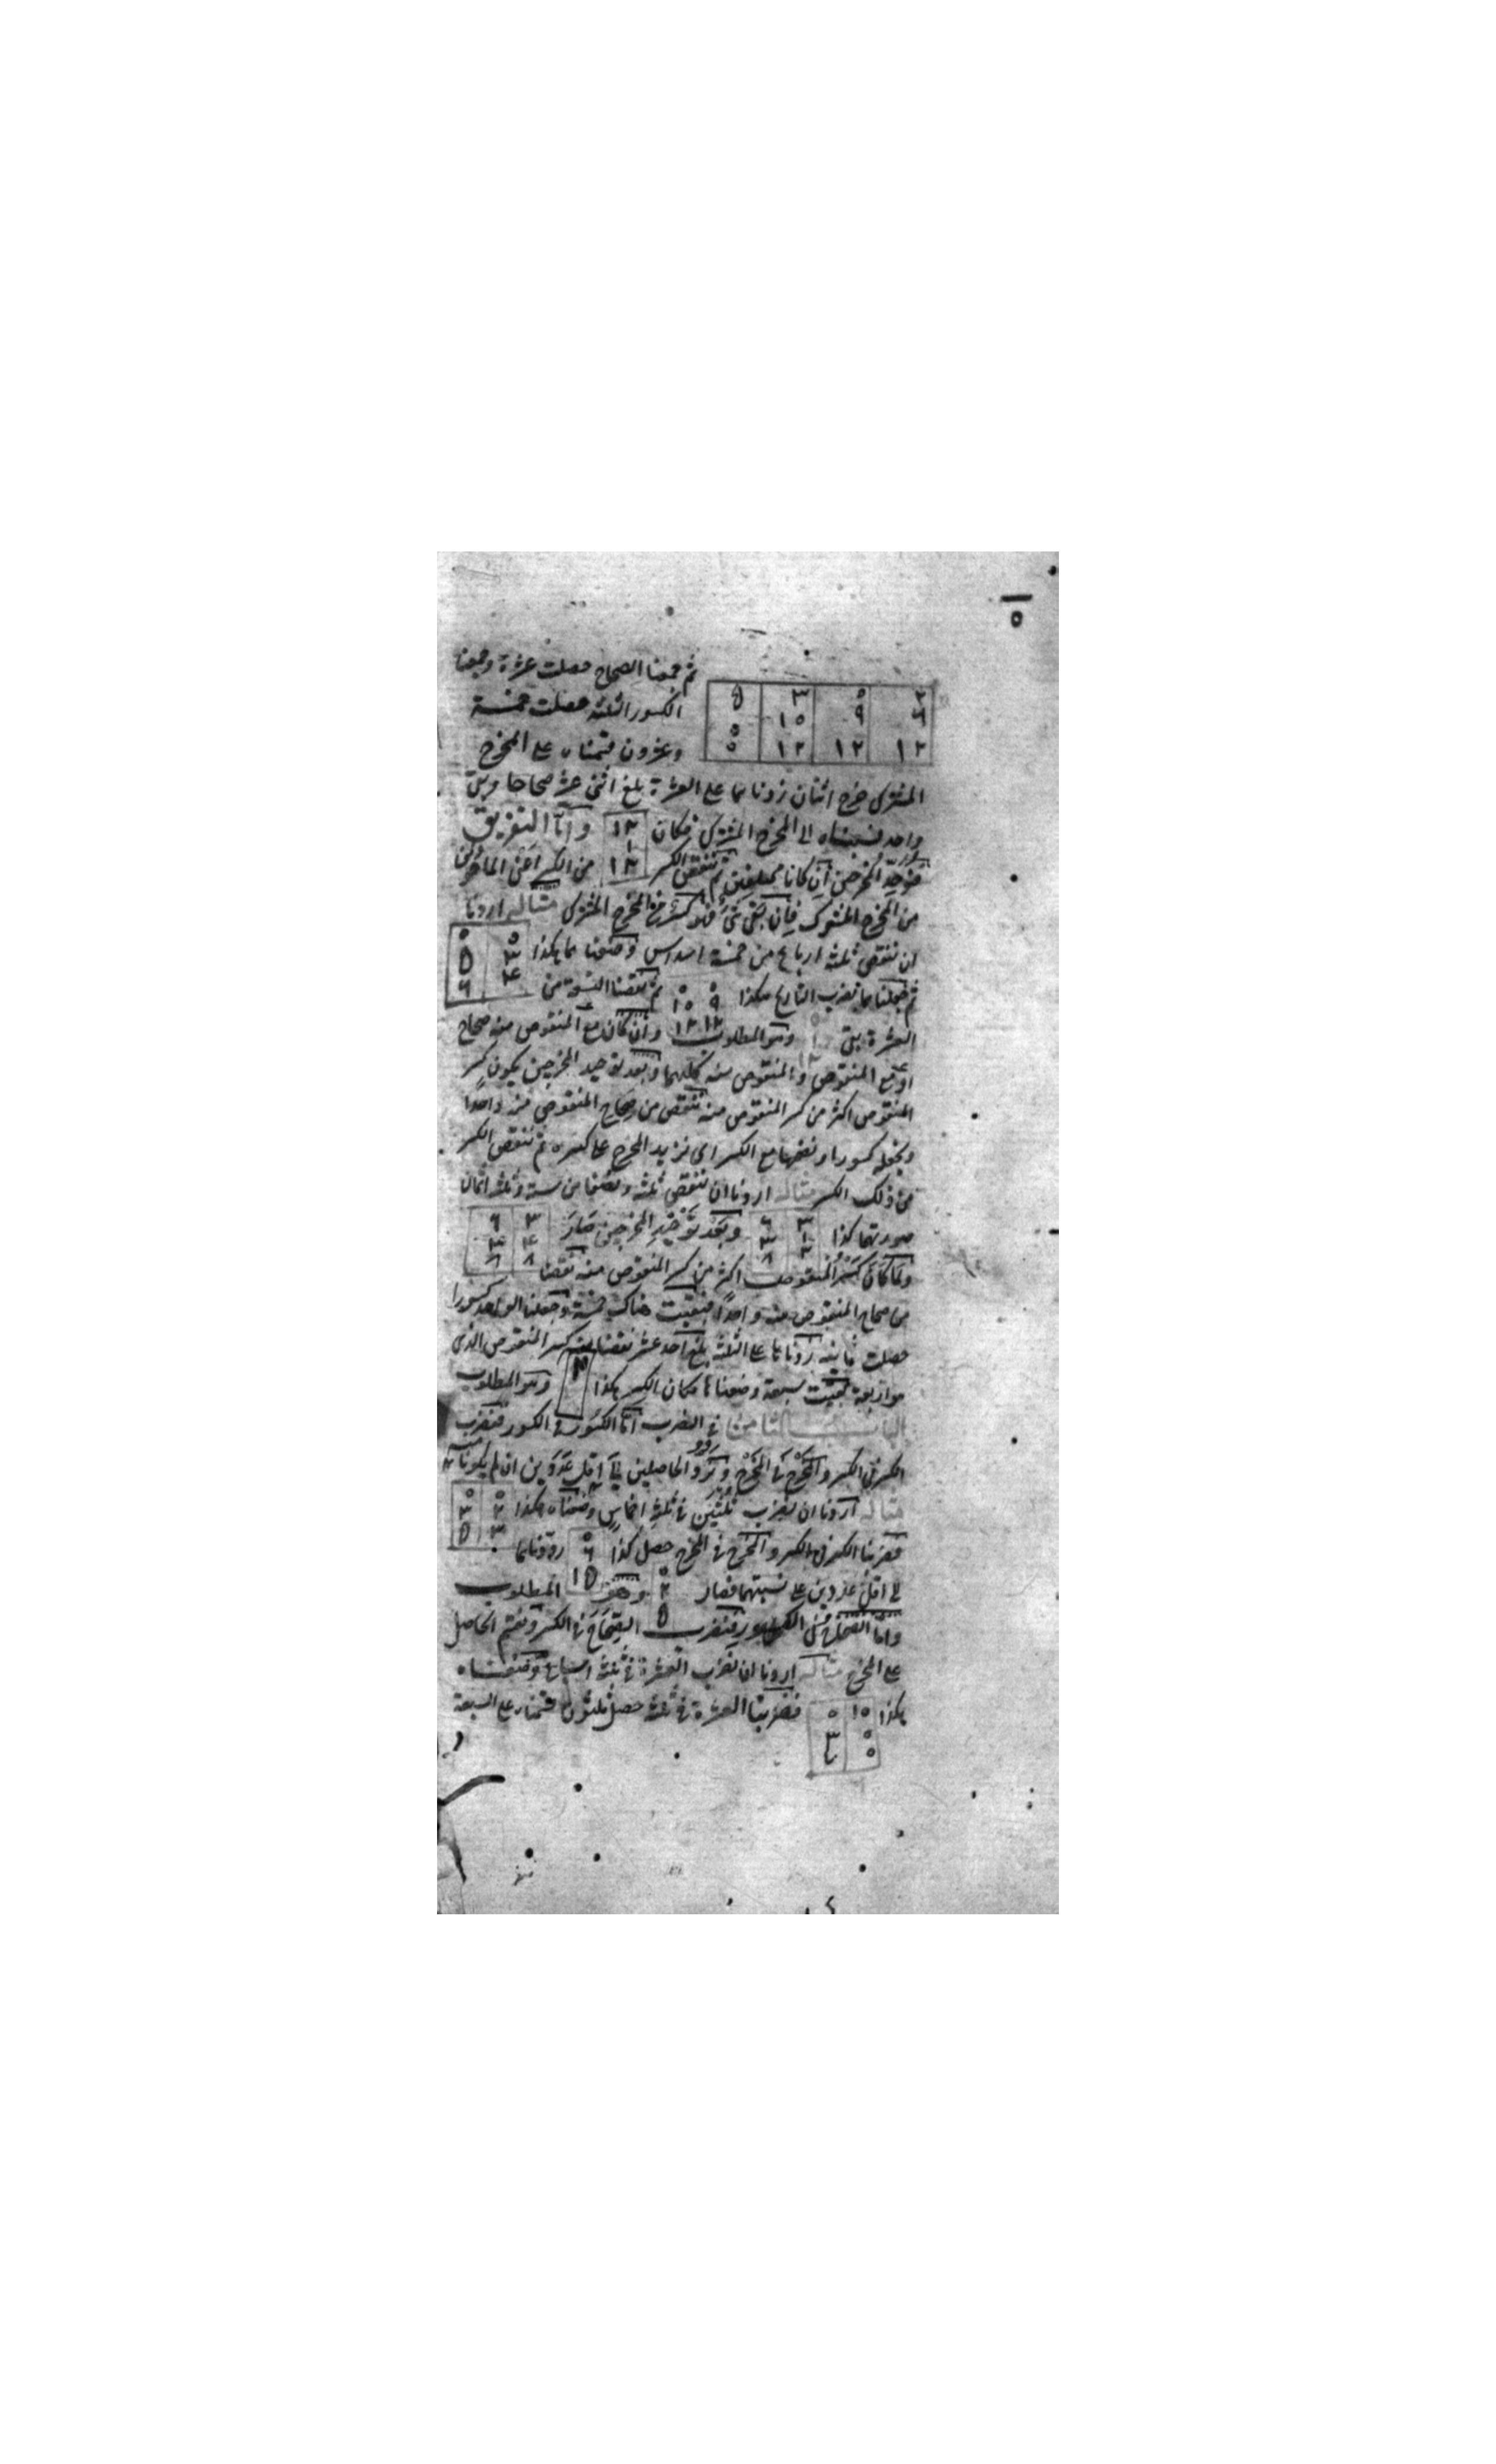 ثم جمعنا الصحاح حصلت عشرة وجمعنا
الكسور الثلثة حصلت خمسة
وعشرون قسمناه على المخرج
المشترك خرج اثنان زدناهما على العشرة بلغ اثنى عشر صحاحا وبقى
واحد نسبناه الى المخرج المشترك فكان ١٢ ١ ١٢ واما التفريق
فنوحد المخرجين ان كانا مختلفين ثم ننقص الكسر من الكسر اعنى الماخوذين
من المخرج المشترك فان بقى شئ فهو كسر من المخرج المشترك مثاله اردنا
ان ننقص ثلثه ارباع من خمسة اسداس وضعناهما هكذا
ثم جعلناهما هكذا ثم نقصنا التسعة من
العشرة بقى وهو المطلوب وان كان مع المنقوص منه صحاح
او مع المنقوص والمنقوص منه كليهما وبعد توحيد المخرجين يكون كسر
المنقوص اكثر من كسر المنقوص منه ننقص من صحاح المنقوص منه واحدا
ونجعله كسورا ونضمها مع الكسر اى نزيد المخرج على كسره ثم ننقص الكسر
من ذلك الكسر مثاله اردنا ان ننقص ثلثه ونصفا من ستة وثلثه اثمان
صورتهما كذا وبعد توحيد المخرجين صار
ولما كان كسر المنقوص اكثر من كسر المنقوص منه نقصنا
من صحاح المنقوص منه واحدا فبقيت هناك خمسة وجعلنا الواحد كسورا
حصلت ثمانيه زدناها على الثلثه بلغ احد عشر نقصنا منه كسر المنقوص الذى
هو اربعة بقيت سبعة وضعناها مكان الكسر هكذا وهو المطلوب
الباب الثامن فى الضرب اما الكسور فى الكسور فنضرب
الكسر فى الكسر والمخرج فى المخرج ونرد الحاصلين الى اقل عددين ان لم يكونا
مثاله اردنا ان نضرب ثلثين فى ثلثه اخماس وضعناه هكذا
فضربنا الكسر فى الكسر والمخرج فى المخرج حصل كذا رددناهما
الى اقل عددين على نسبتهما فصار وهو المطلوب
واما الصحاح فى الكسور فنضرب الصحاح فى الكسر ونقسم الحاصل
على المخرج مثاله اردنا ان نضرب العشرة فى ثلثه اسباع وضعناه
هكذا فضربنا العشرة فى ثلثه حصل ثلثون قسمناه على السبعة